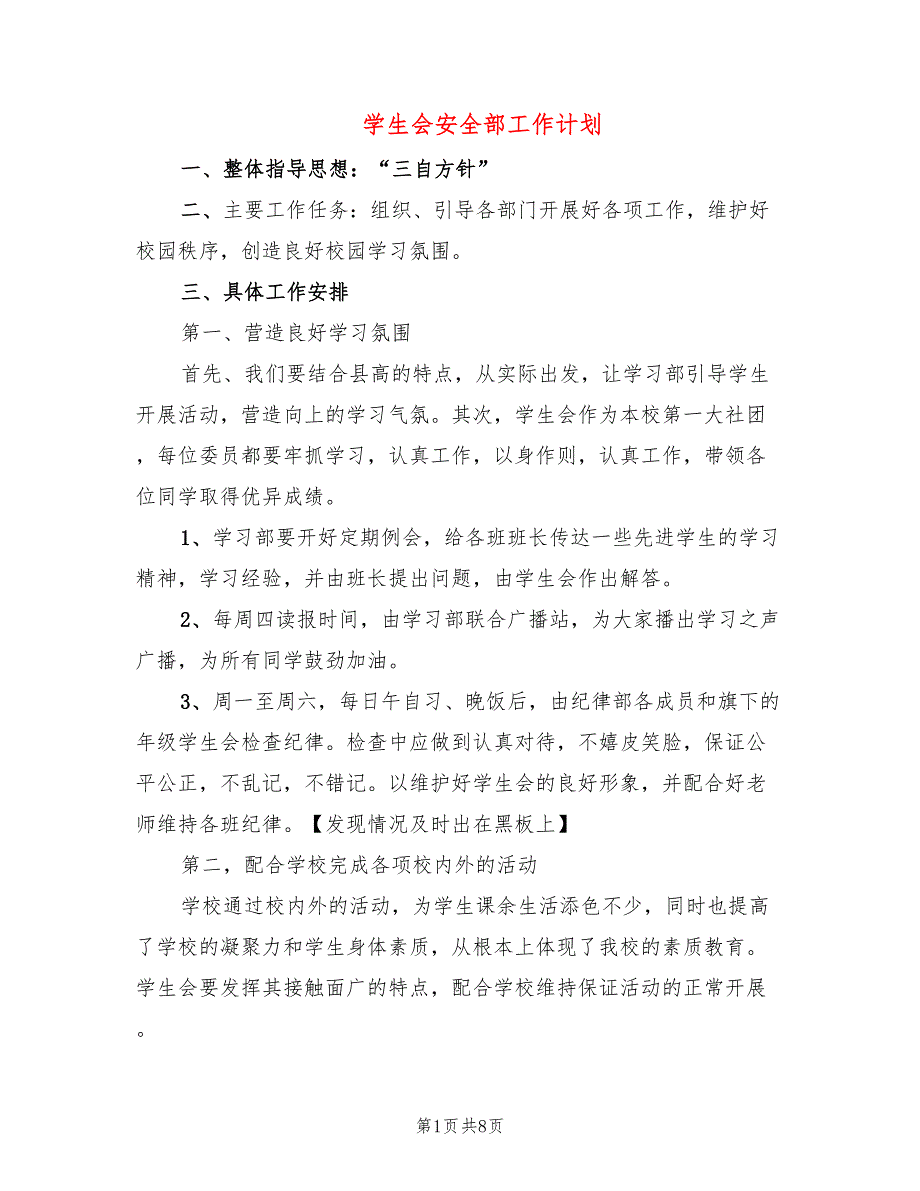 学生会安全部工作计划
一、整体指导思想：“三自方针”
二、主要工作任务：组织、引导各部门开展好各项工作，维护好
校园秩序，创造良好校园学习氛围。
三、具体工作安排
第一、营造良好学习氛围
首先、我们要结合县高的特点，从实际出发，让学习部引导学生
开展活动，营造向上的学习气氛。其次，学生会作为本校第一大社团
，每位委员都要牢抓学习，认真工作，以身作则，认真工作，带领各
位同学取得优异成绩。
1、学习部要开好定期例会，给各班班长传达一些先进学生的学习
精神，学习经验，并由班长提出问题，由学生会作出解答。
2、每周四读报时间，由学习部联合广播站，为大家播出学习之声
广播，为所有同学鼓劲加油。
3、周一至周六，每日午自习、晚饭后，由纪律部各成员和旗下的
年级学生会检查纪律。检查中应做到认真对待，不嬉皮笑脸，保证公
平公正，不乱记，不错记。以维护好学生会的良好形象，并配合好老
师维持各班纪律。【发现情况及时出在黑板上】
第二，配合学校完成各项校内外的活动
学校通过校内外的活动，为学生课余生活添色不少，同时也提高
了学校的凝聚力和学生身体素质，从根本上体现了我校的素质教育。
学生会要发挥其接触面广的特点，配合学校维持保证活动的正常开展
。
第1页 共8页